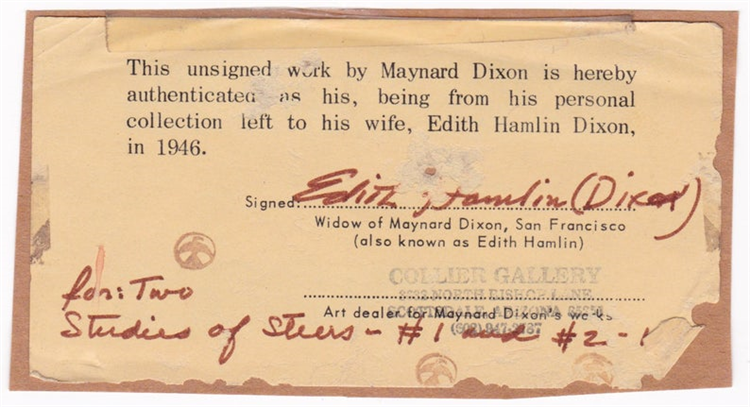 This unsigned work by Maynard Dixon is hereby
authenticated as his, being from his personal
collection left to his wife, Edith Hamlin Dixon,
in 1946.
Signed: Edith Hamlin (Dixon)
Widow of Maynard Dixon, San Francisco
(also known as Edith Hamlin)
COLLIER GALLERY
NORTH BISHOP LANE
SCOTTSDALE, ARIZONA
Art dealer for Maynard Dixon's works
for: Two
Studies of Steers - #1 and #2 -